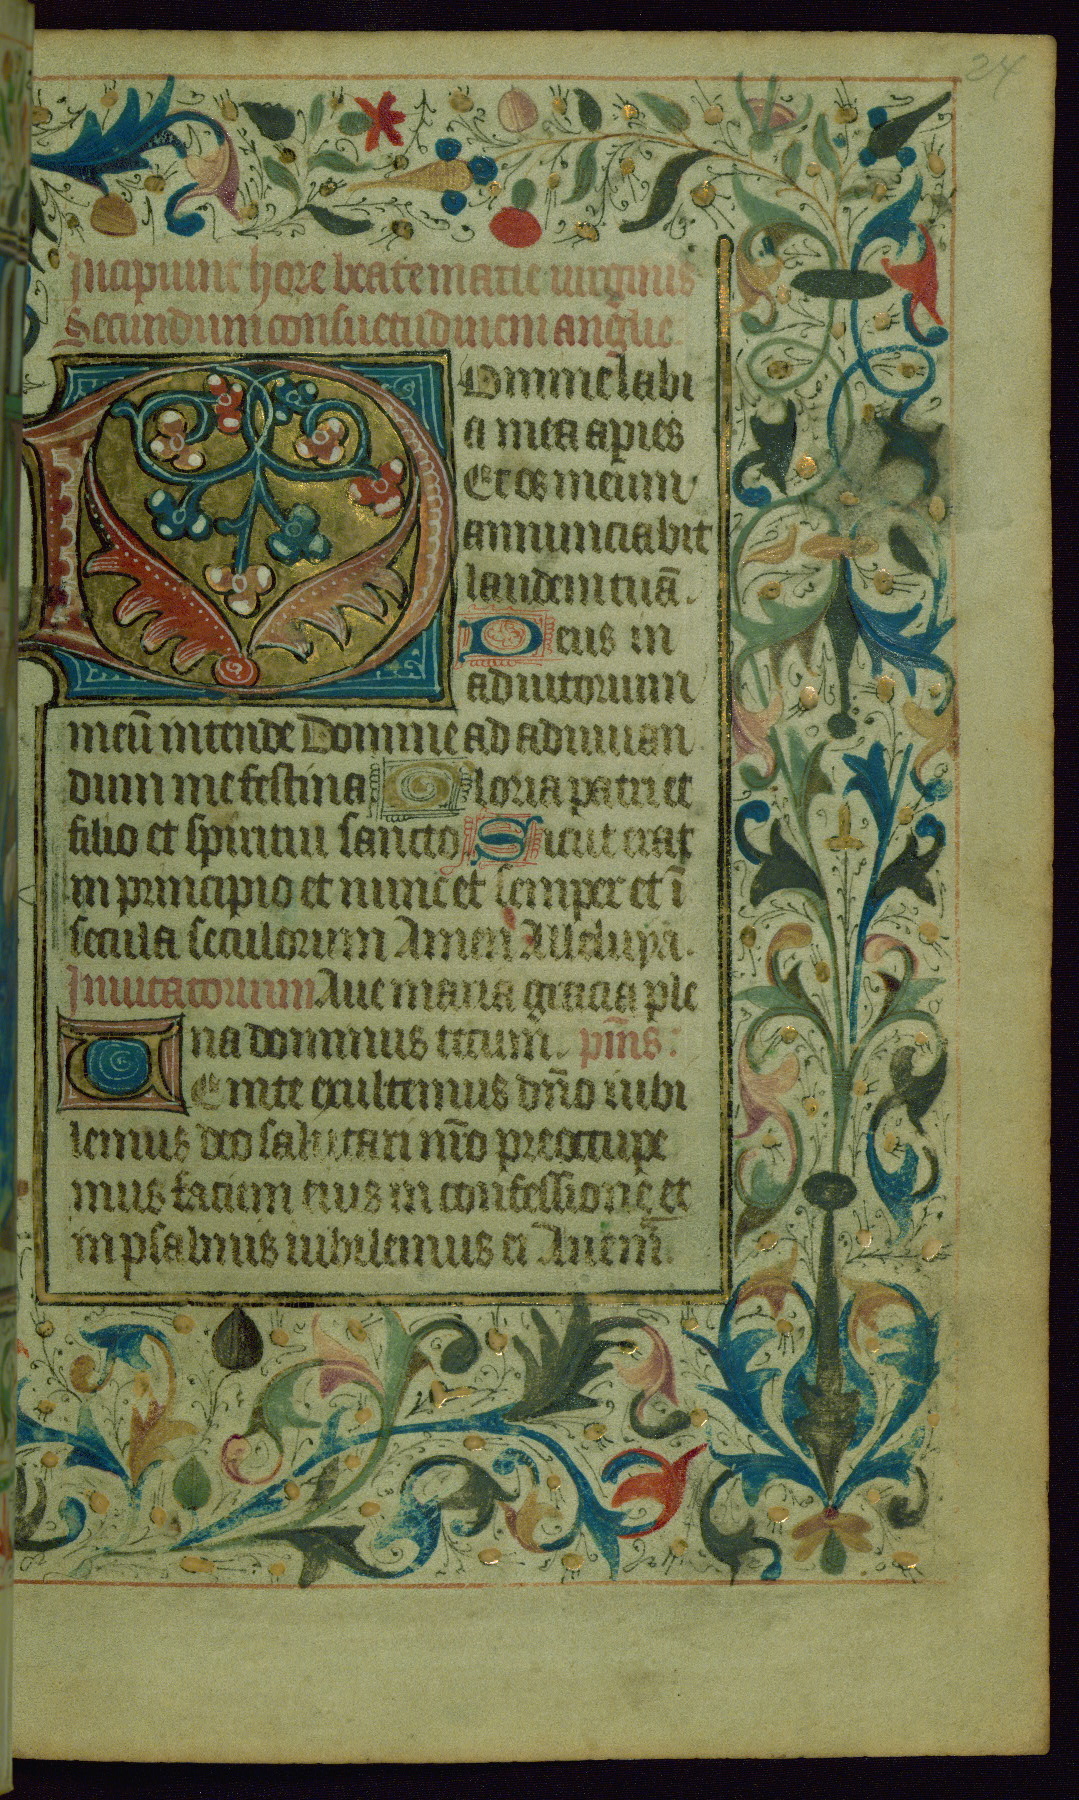 24
Incipiunt hore beate marie uirginis
Secundum consuetudinem anglie
Domine labi
a mea apies
Et os meum
annunciabit
laudem tuā.
Deus in
adiutorium
meū intende Domine ad adiuuan
dum me festina Gloria patri et
filio et spiritui sancto Sicut erat
in principio et nunc et semper et ī
secula seculorum Amen Alleluya.
Inuitatorium Aue maria gracia ple
na dominus tecum. p̄ms:
VEnite exultemus dn̄o iubi
lemus deo salutari nr̄o preoccupe
mus faciem eius in confessione et
in psalmis iubilemus ei Aue m̄.